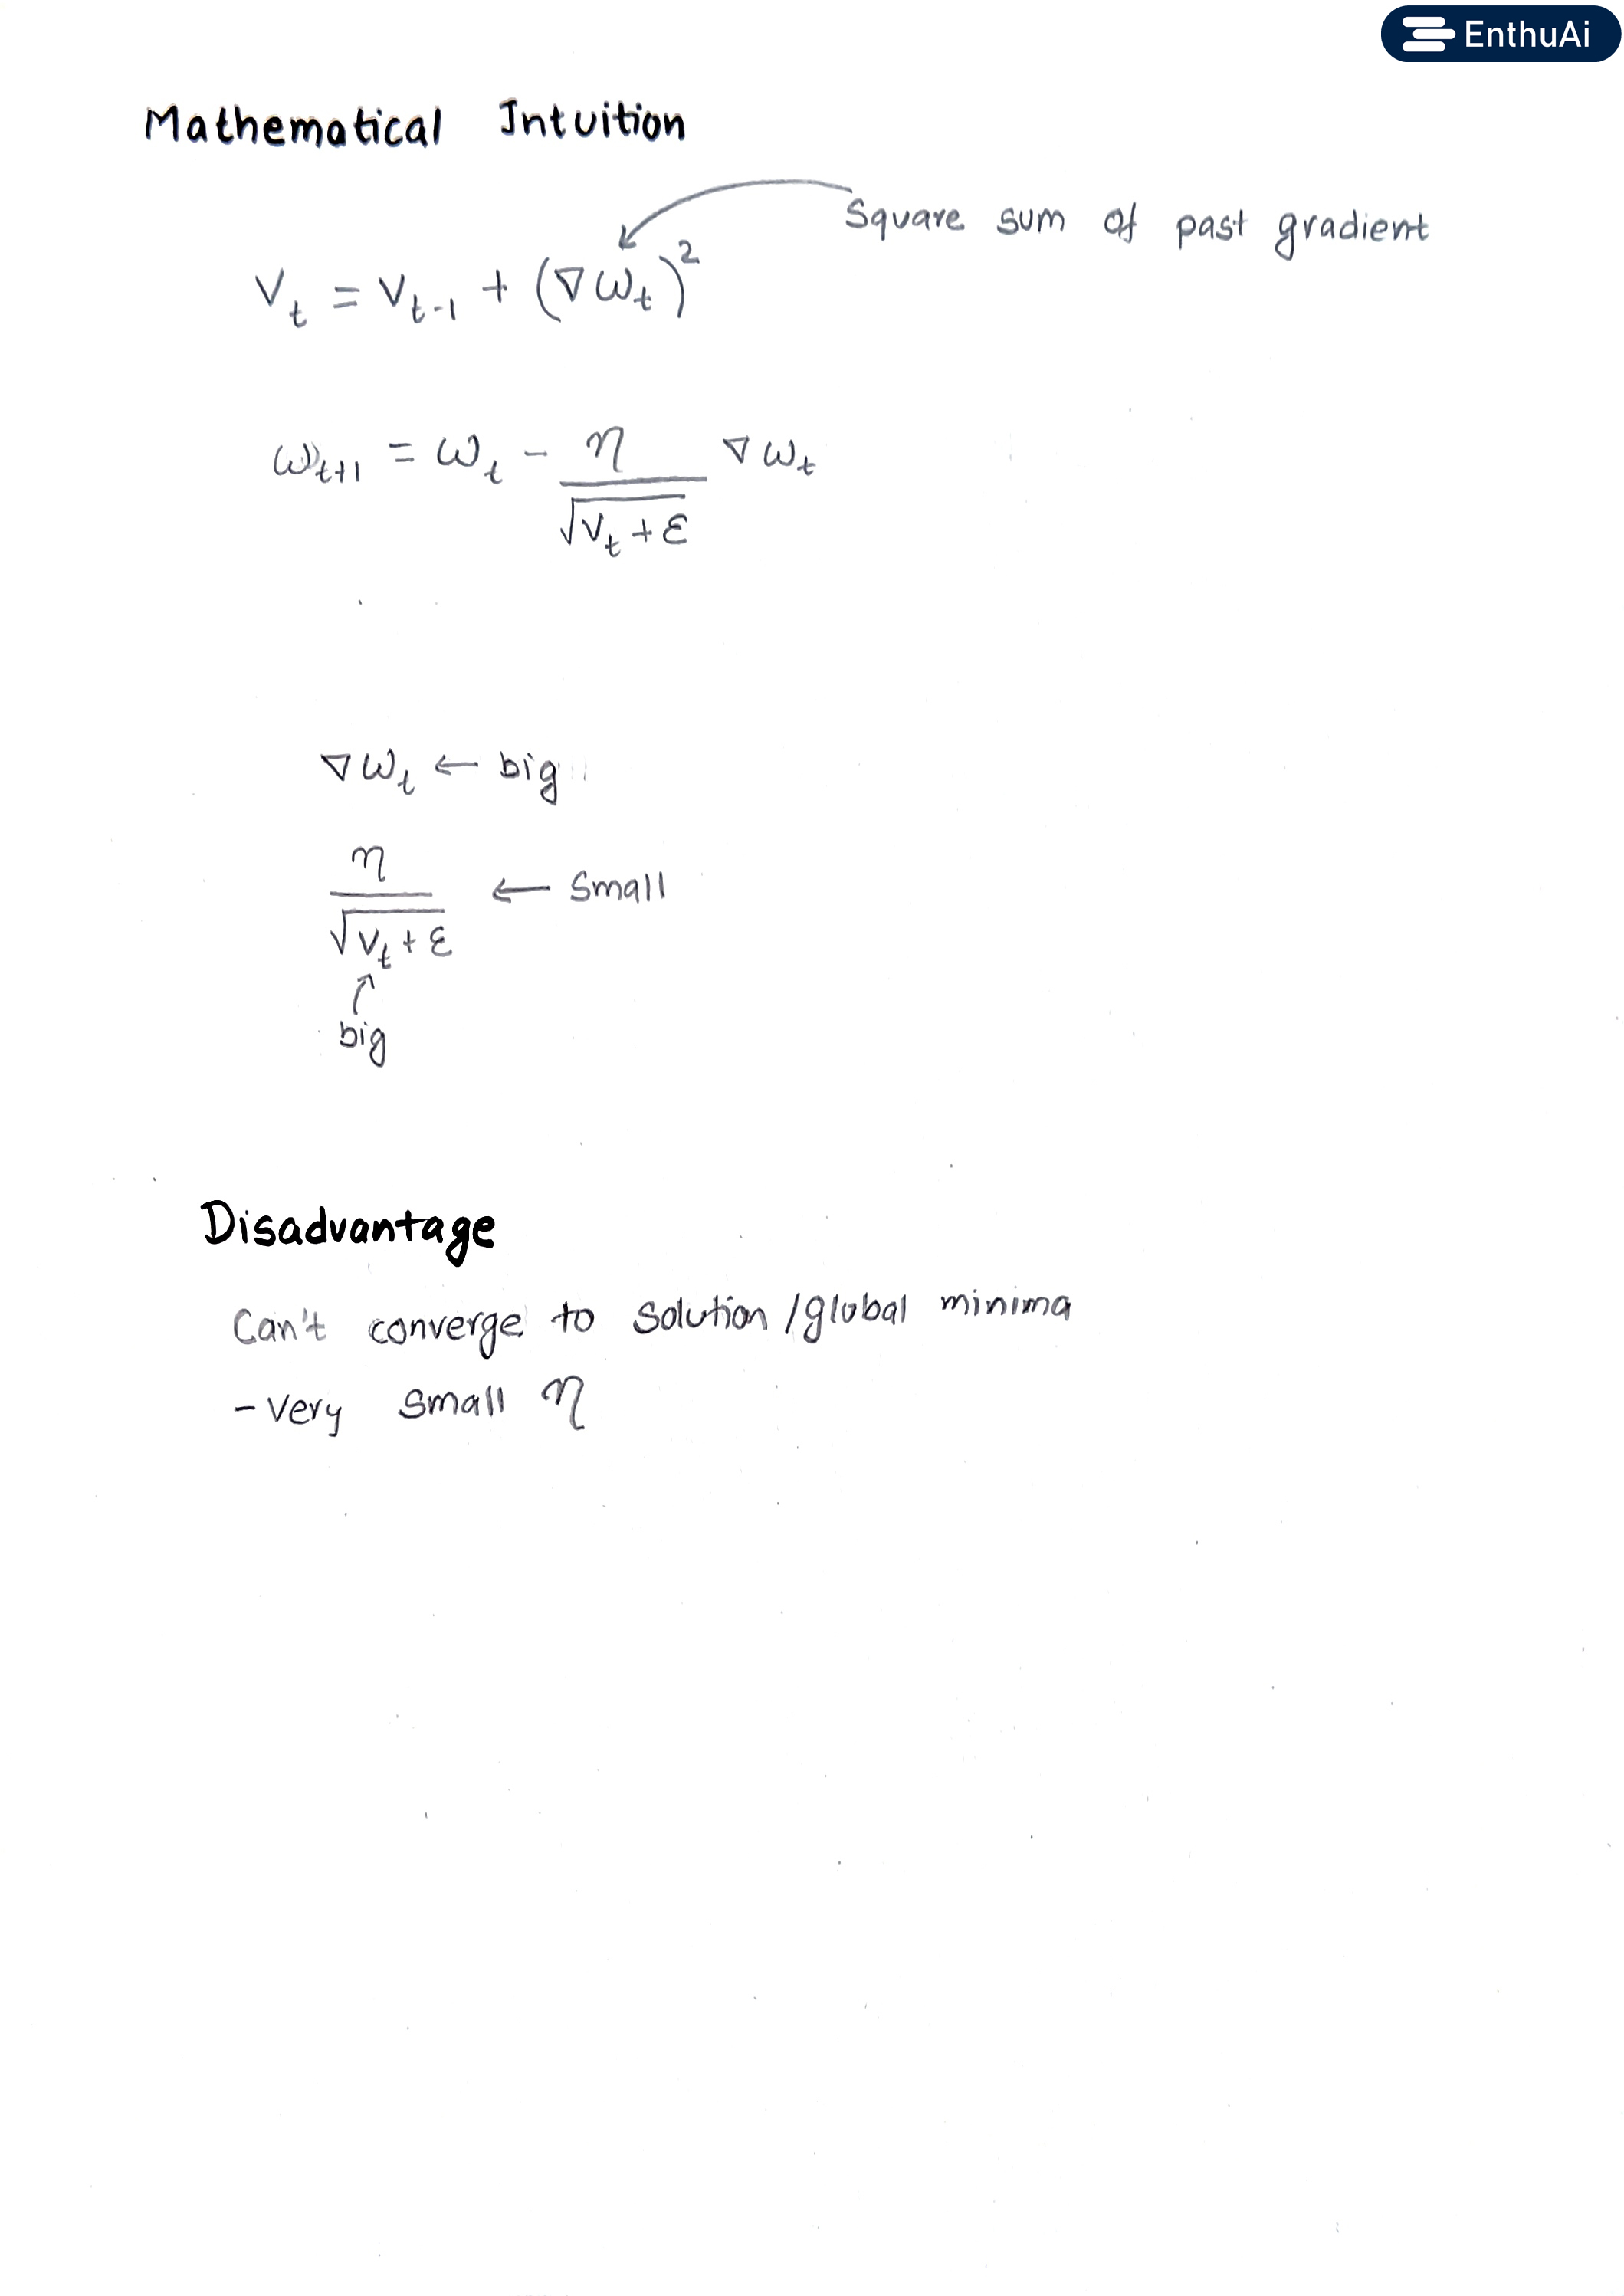 EnthuAi
Mathematical Intuition
Square sum of past gradient
V_t = V_{t-1} + (∇ω_t)^2
ω_{t+1} = ω_t - η / √(V_t + ε) ∇ω_t
∇ω_t ← big
η / √(V_t + ε) ← Small
↑
big
Disadvantage
Can't converge to solution / global minima
- Very small η